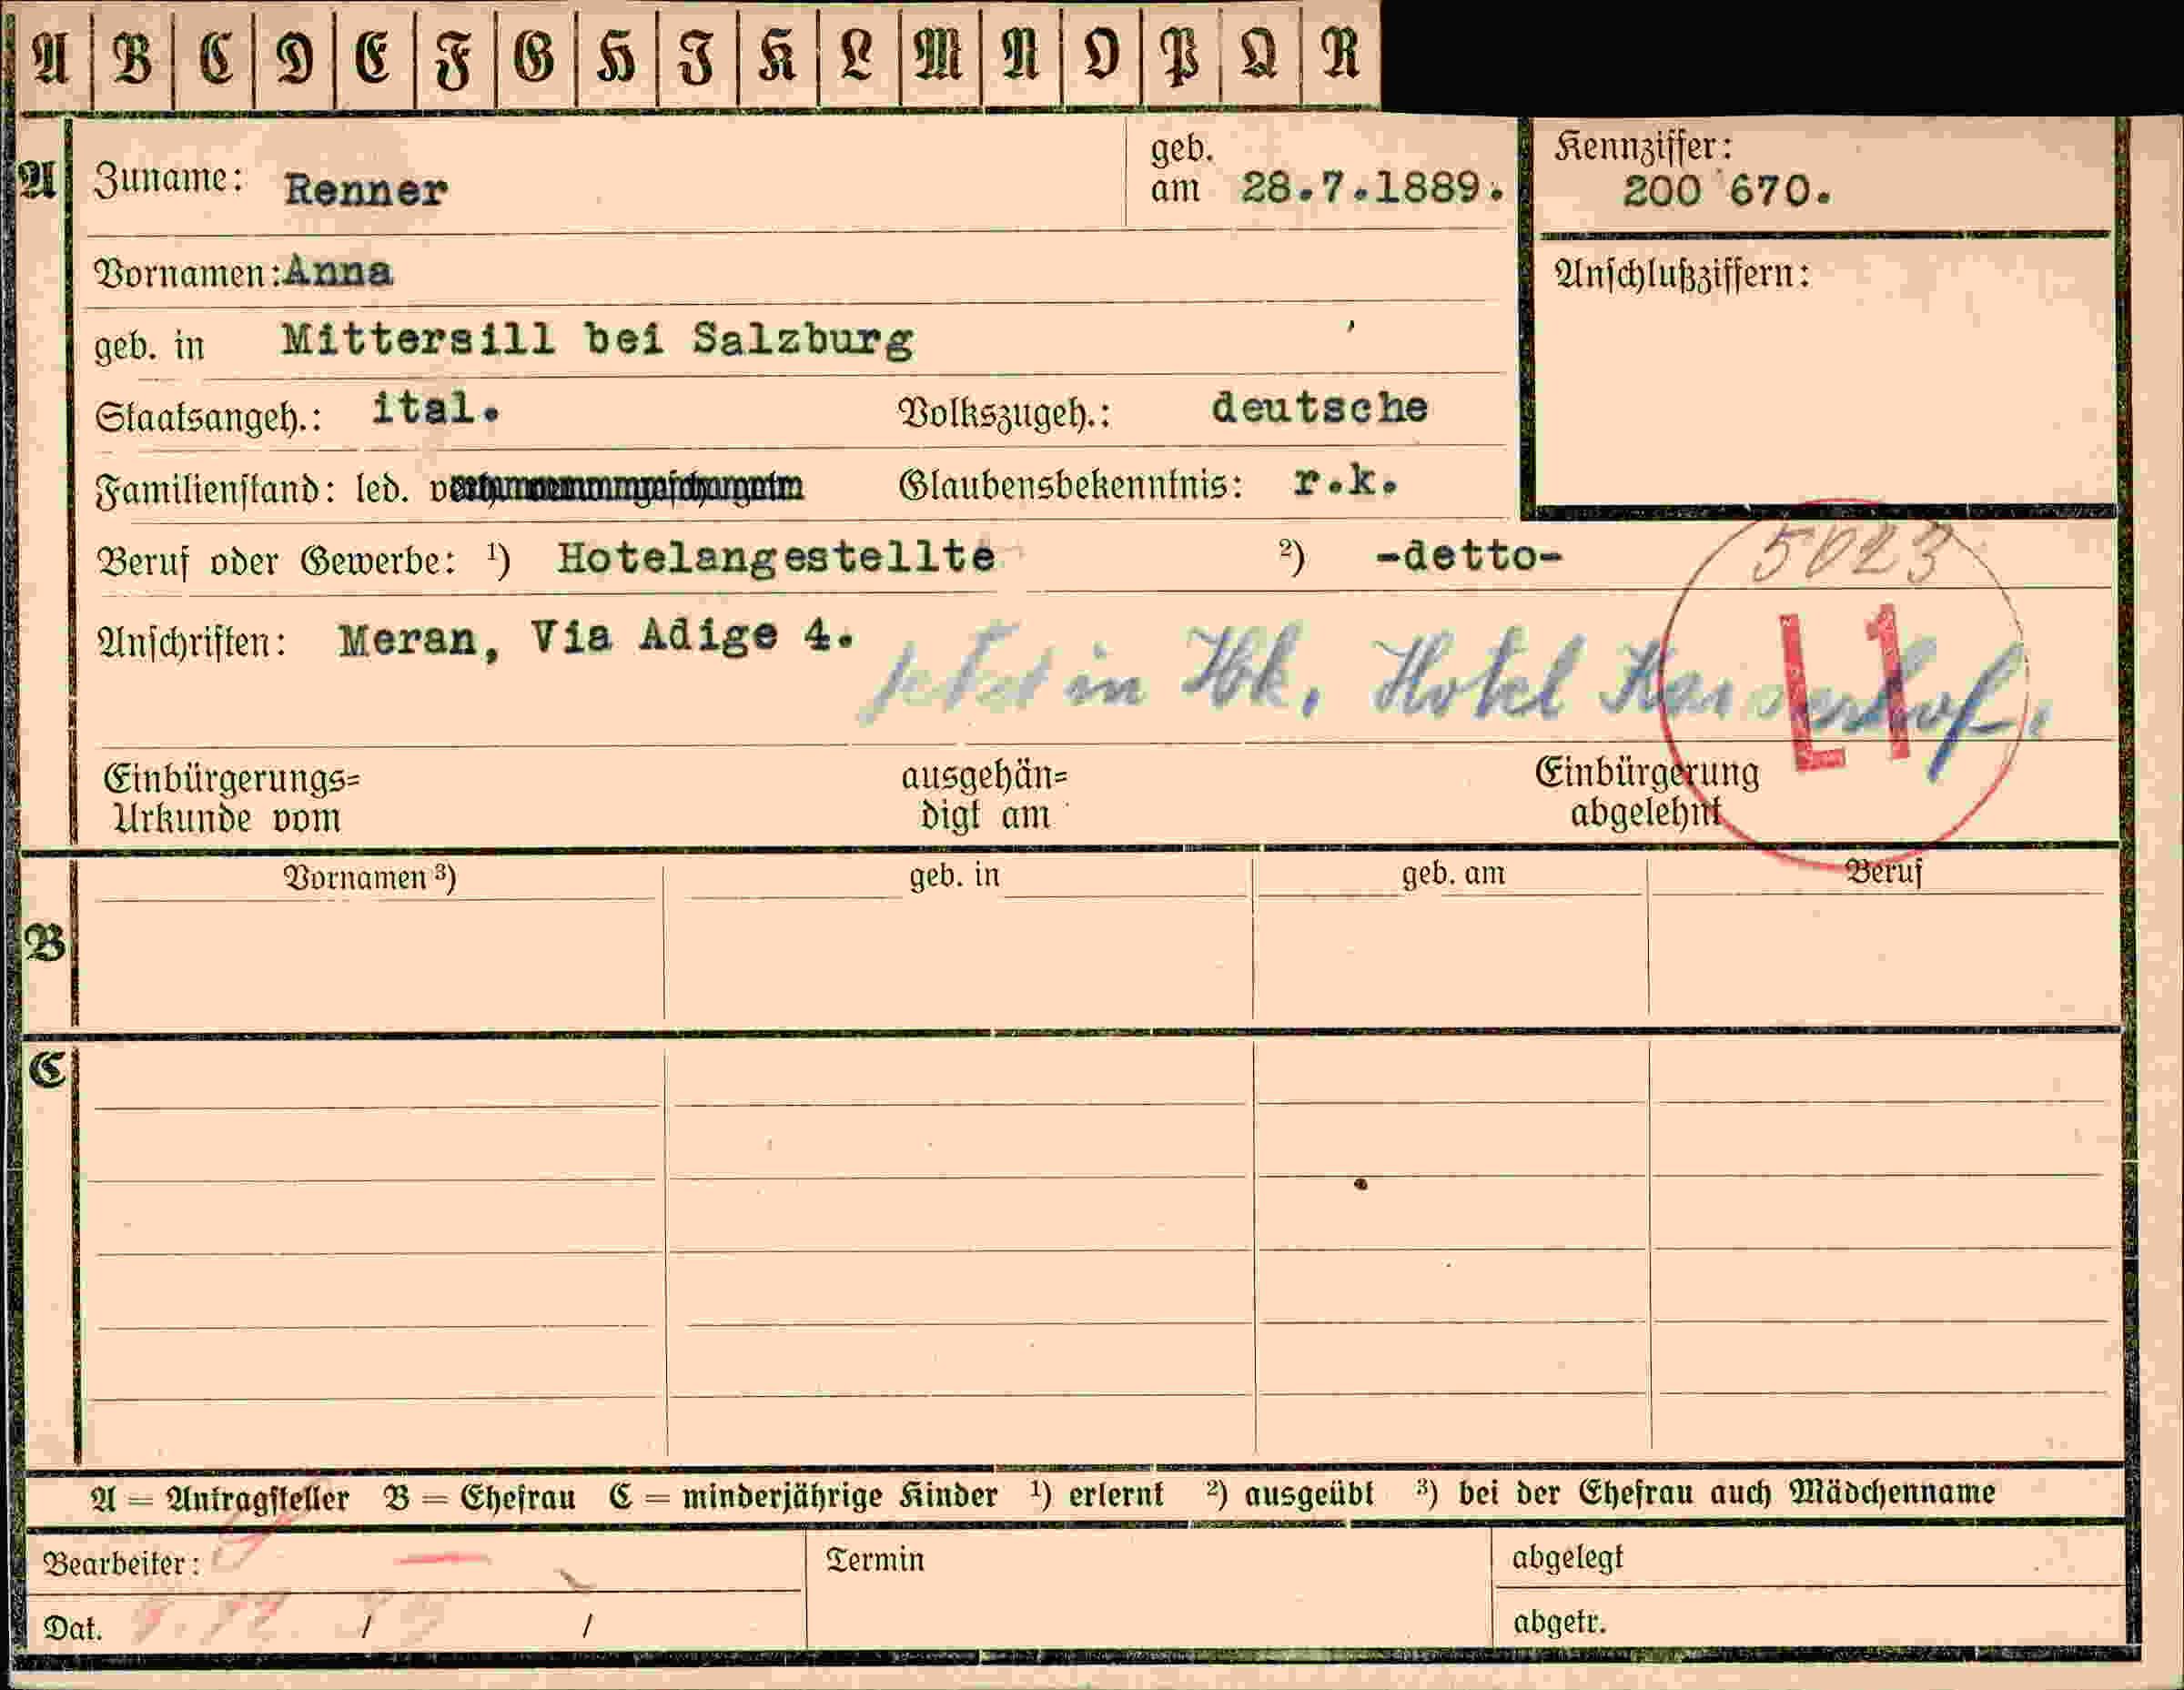 A B C D E F G H I K L M N O P Q R
A Zuname: Renner geb. am 28.7.1889. Kennziffer: 200 670.
Vornamen: Anna Anschlußziffern:
geb. in Mittersill bei Salzburg
Staatsangeh.: ital. Volkszugeh.: deutsche
Familienstand: led. Glaubensbekenntnis: r.k.
Beruf oder Gewerbe: ¹) Hotelangestellte ²) -detto-
5023
Anschriften: Meran, Via Adige 4.
jetzt in Ibk, Hotel Kaiserhof,
L1
Einbürgerungs= Urkunde vom ausgehän= digt am Einbürgerung abgelehnt
B Vornamen ³) geb. in geb. am Beruf
C
A = Antragsteller B = Ehefrau C = minderjährige Kinder ¹) erlernt ²) ausgeübt ³) bei der Ehefrau auch Mädchenname
Bearbeiter: Termin abgelegt
Dat. / / abgetr.